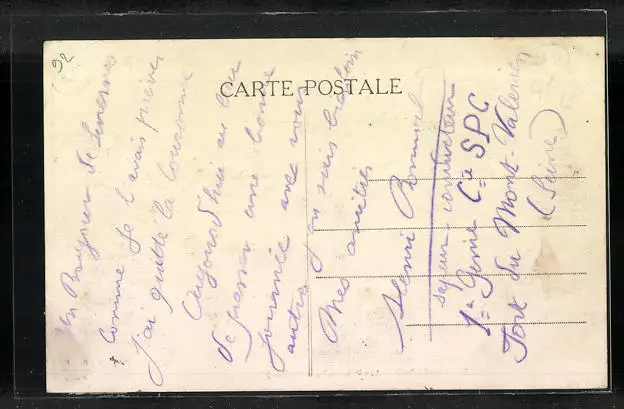 92
CARTE POSTALE
Un Bonjour de Suresnes
Comme je l'avais prévu
j'ai quitté la
Aujourd'hui au lieu
de passer une bonne
journée avec vous
autre
j'en suis bien loin
Mes amitiés
Henri
sapeur-conducteur
1er Génie Cie SPC
Fort du Mont-Valérien
(Seine)